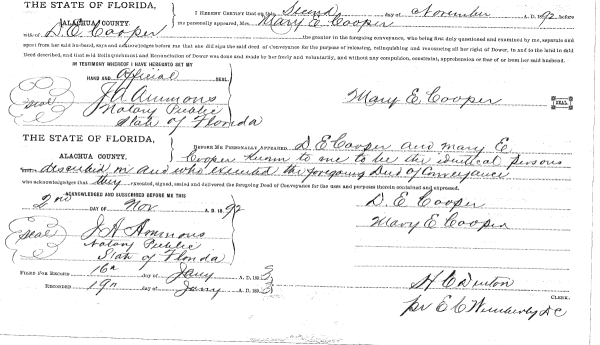 THE STATE OF FLORIDA,
I HEREBY CERTIFY That on this Second day of November A. D. 1892 before
ALACHUA COUNTY.
me personally appeared, Mrs. Mary E Cooper
wife of D. E. Cooper the grantor in the foregoing conveyance, who being first duly questioned and examined by me, separate and
apart from her said husband, says and acknowledges before me that she did sign the said deed of Conveyance for the purpose of releasing, relinquishing and renouncing all her right of Dower, in and to the land in said
Deed described, and that said Relinquishment and Renunciation of Dower was done and made by her freely and voluntarily, and without any compulsion, constraint, apprehension or fear of or from her said husband.
IN TESTIMONY WHEREOF I HAVE HEREUNTO SET MY
HAND AND Official SEAL,
Seal
J A Ammons
Mary E Cooper SEAL
Notary Public
State of Florida
THE STATE OF FLORIDA,
ALACHUA COUNTY.
BEFORE ME PERSONALLY APPEARED D. E Cooper and Mary E
Cooper known to me to be the identical persons
described in and who executed the foregoing Deed of Conveyance
who acknowledges that they executed, signed, sealed and delivered the foregoing Deed of Conveyance for the uses and purposes therein contained and expressed.
ACKNOWLEDGED AND SUBSCRIBED BEFORE ME THIS
2nd DAY OF Nov A. D. 1892
D. E. Cooper
Seal
J A Ammons
Mary E Cooper
Notary Public
State of Florida
FILED FOR RECORD 16th day of Jany A. D. 1893
RECORDED 19th day of Jany A. D. 1893
H C Denton CLERK.
pr E C Wimberly D C